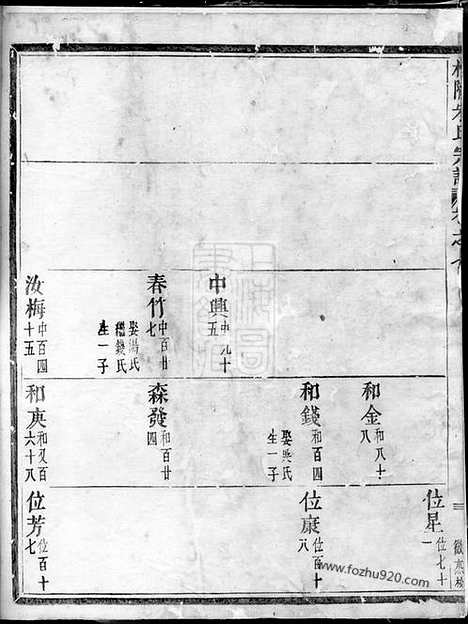 氏宗譜
中興 中九十五
春竹 中百廿七
娶湯氏
繼錢氏
生一子
汝梅 中百四十五
和金 和八十八
和錢 和百四
娶吳氏
生一子
森發 和百廿四
和庚 和又百六十八
位星 位七十一
位康 位百十八
位芳 位百十七
www.fozhu920.com